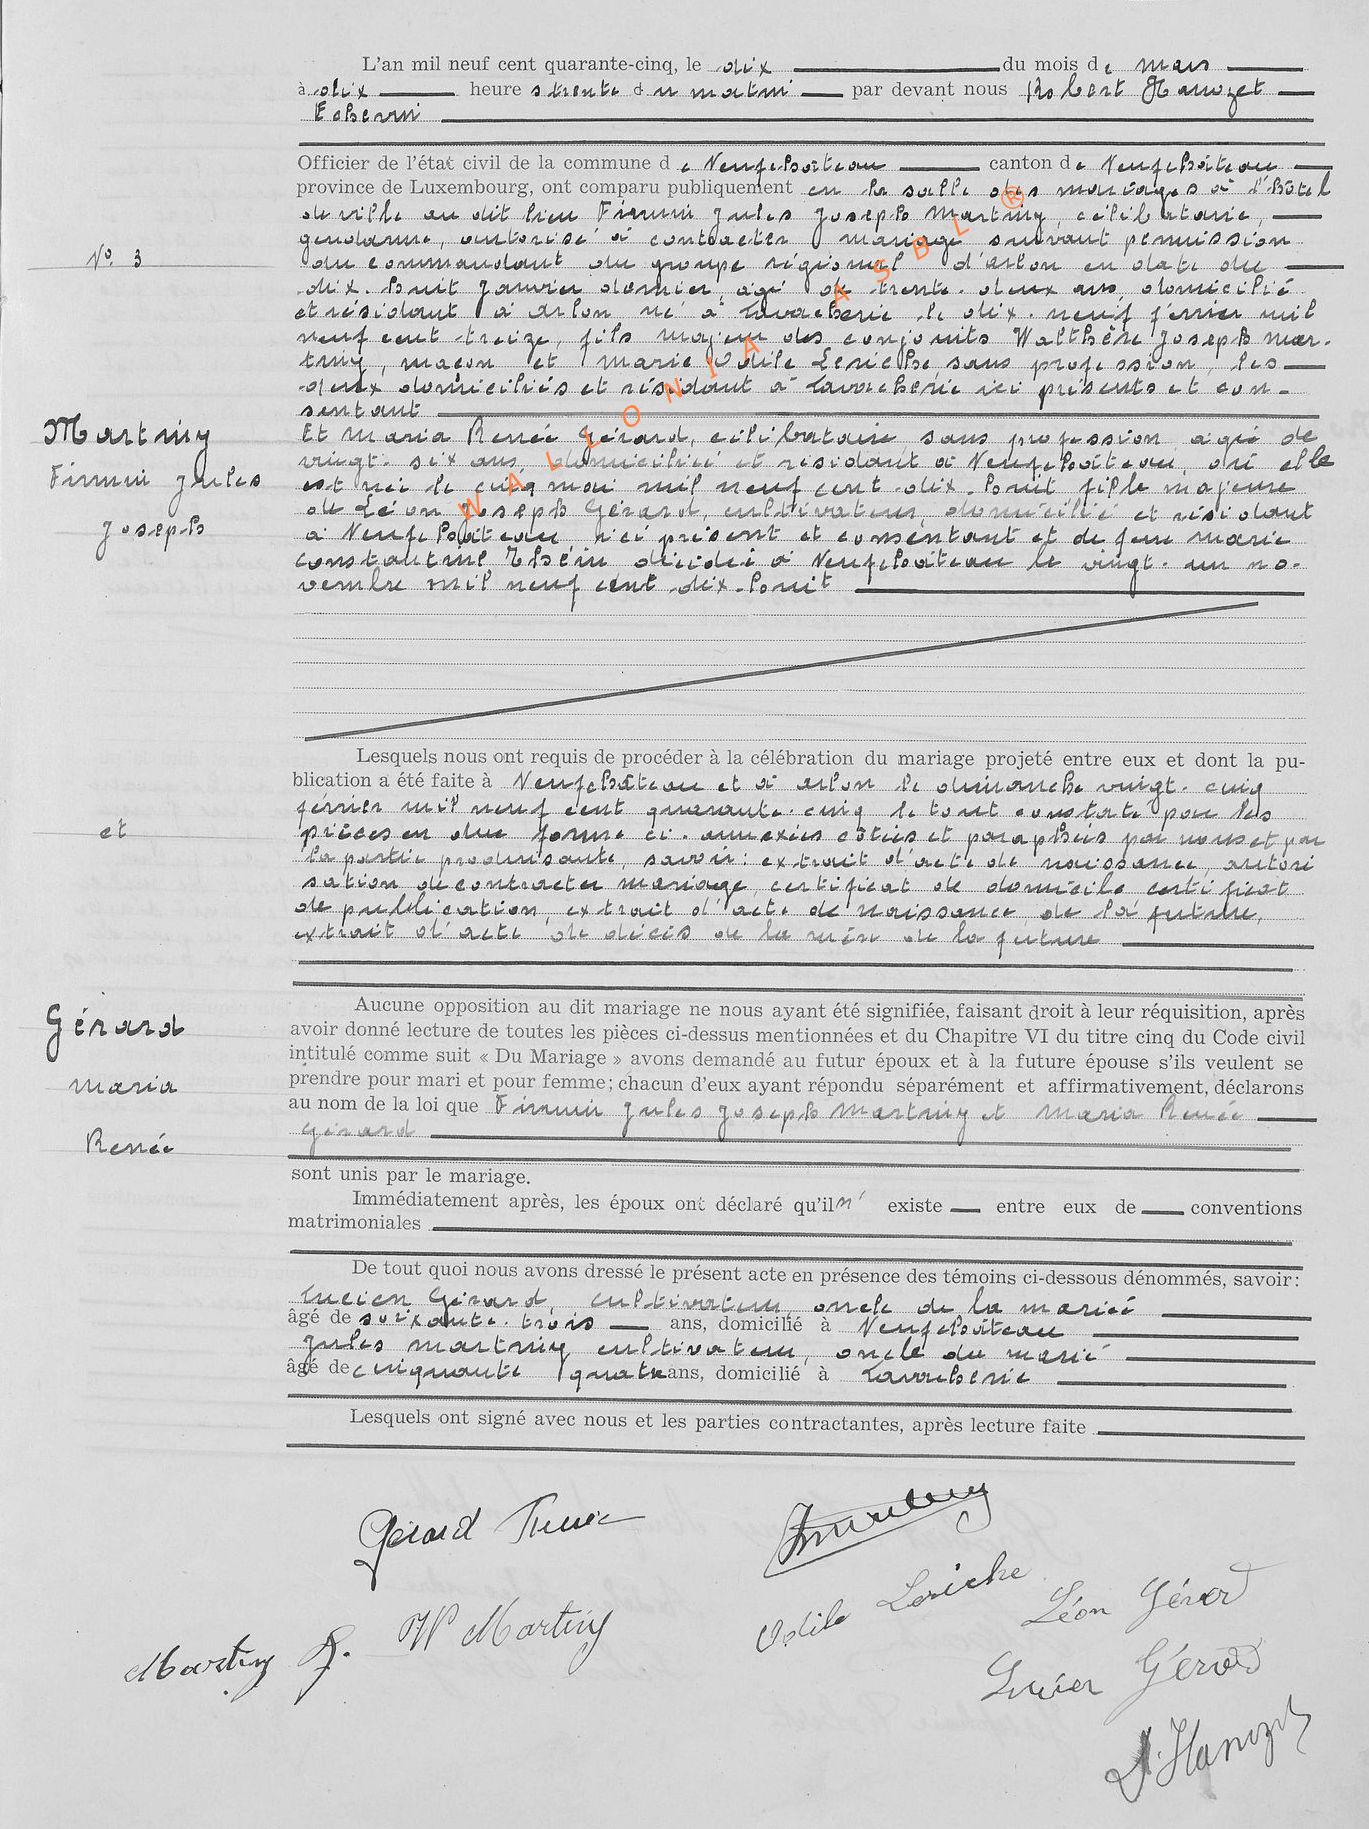 L'an mil neuf cent quarante-cinq, le dix du mois de mars
à dix heures trente du matin par devant nous Robert Hanozet
Echevin
Officier de l'état civil de la commune de Neufchâteau canton de Neufchâteau
province de Luxembourg, ont comparu publiquement en la salle des mariages à l'hôtel
de ville au dit lieu Firmin Jules Joseph Martiny, célibataire,
gendarme, autorisé à contracter mariage suivant permission
No. 3
du commandant du groupe régional d'Arlon en date du
dix-huit janvier dernier, âgé de trente-deux ans, domicilié
et résidant à Arlon né à Lavacherie le dix-neuf février mil
neuf cent treize, fils majeur des conjoints Walthère Joseph Mar-
tiny, maçon et Marie Odile Leriche sans profession, les
deux domiciliés et résidant à Lavacherie ici présents et con-
sentant
Martiny
Firmin Jules
Joseph
Et Maria Renée Gérard, célibataire sans profession âgée de
vingt-six ans, domiciliée et résidant à Neufchâteau, où elle
est née le cinq mai mil neuf cent dix-huit fille majeure
de Léon Joseph Gérard, cultivateur, domicilié et résidant
à Neufchâteau ici présent et consentant et de feue Marie
Constantine Thérin décédée à Neufchâteau le vingt-un no-
vembre mil neuf cent dix-huit
Lesquels nous ont requis de procéder à la célébration du mariage projeté entre eux et dont la pu-
blication a été faite à Neufchâteau et à Arlon le dimanche vingt-cinq
février mil neuf cent quarante-cinq le tout constaté par les
et
pièces en due forme ci-annexées cotées et paraphées par nous et par
la partie produisante, savoir: extrait d'acte de naissance, autori
sation de contracter mariage, certificat de domicile certificat
de publication, extrait d'acte de naissance de la future,
extrait d'acte de décès de la mère de la future
Gérard
Maria
Renée
Aucune opposition au dit mariage ne nous ayant été signifiée, faisant droit à leur réquisition, après
avoir donné lecture de toutes les pièces ci-dessus mentionnées et du Chapitre VI du titre cinq du Code civil
intitulé comme suit « Du Mariage » avons demandé au futur époux et à la future épouse s'ils veulent se
prendre pour mari et pour femme; chacun d'eux ayant répondu séparément et affirmativement, déclarons
au nom de la loi que Firmin Jules Joseph Martiny et Maria Renée
Gérard
sont unis par le mariage.
Immédiatement après, les époux ont déclaré qu'il n' existe entre eux de conventions
matrimoniales
De tout quoi nous avons dressé le présent acte en présence des témoins ci-dessous dénommés, savoir:
Lucien Gérard, cultivateur, oncle de la mariée
âgé de soixante-trois ans, domicilié à Neufchâteau
Jules Martiny cultivateur, oncle du marié
âgé de cinquante quatre ans, domicilié à Lavacherie
Lesquels ont signé avec nous et les parties contractantes, après lecture faite
Gérard
Odile Leriche
Léon Gérard
Martiny J.
W Martiny
Lucien Gérard
Hanozet
WALLONIA ASBL ®